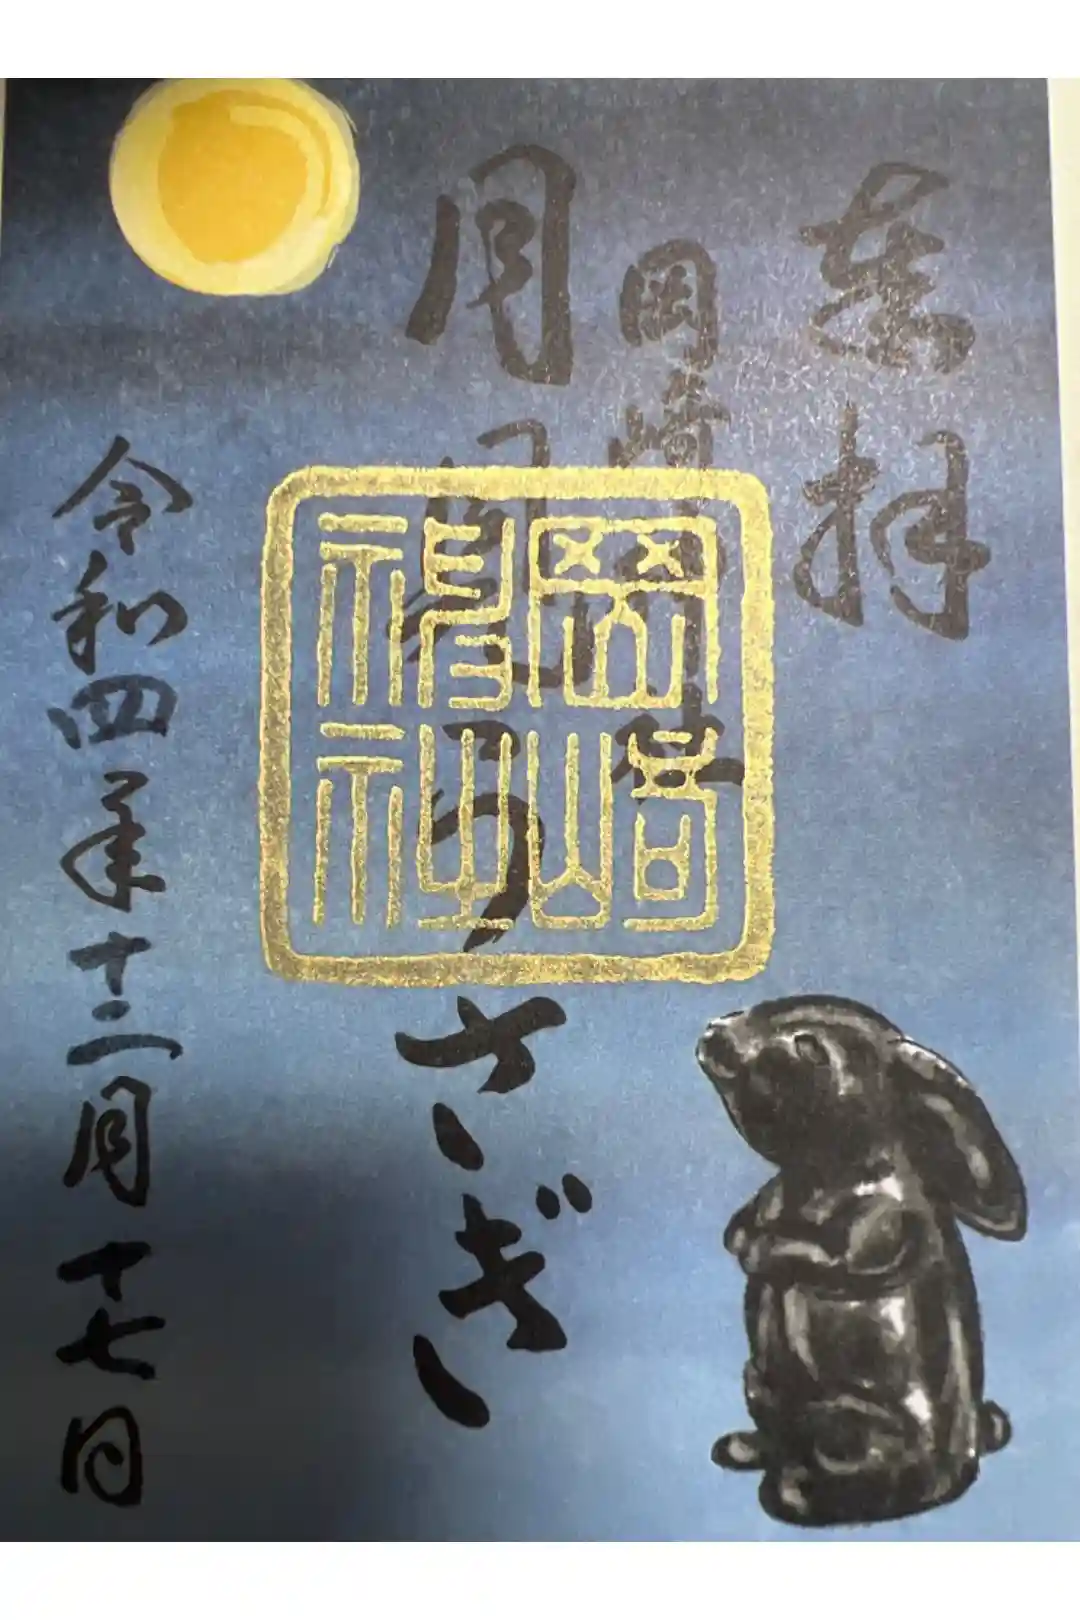 奉拝
岡崎神社
月見うさぎ
令和四年十二月十七日
岡崎
神社